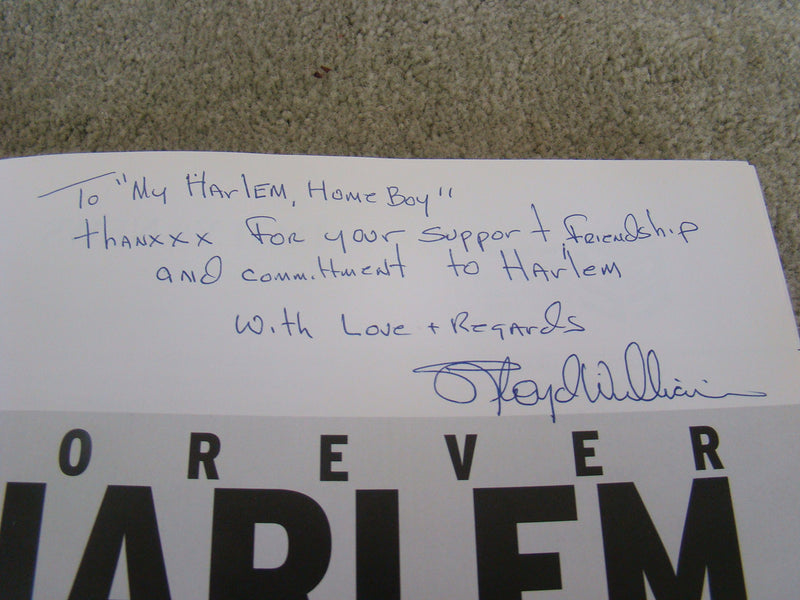 To "My Harlem, Home Boy"
thanxxx For your support, Friendship
and committment to Harlem
With Love + Regards
Lloyd Williams
OREVER
HARLEM